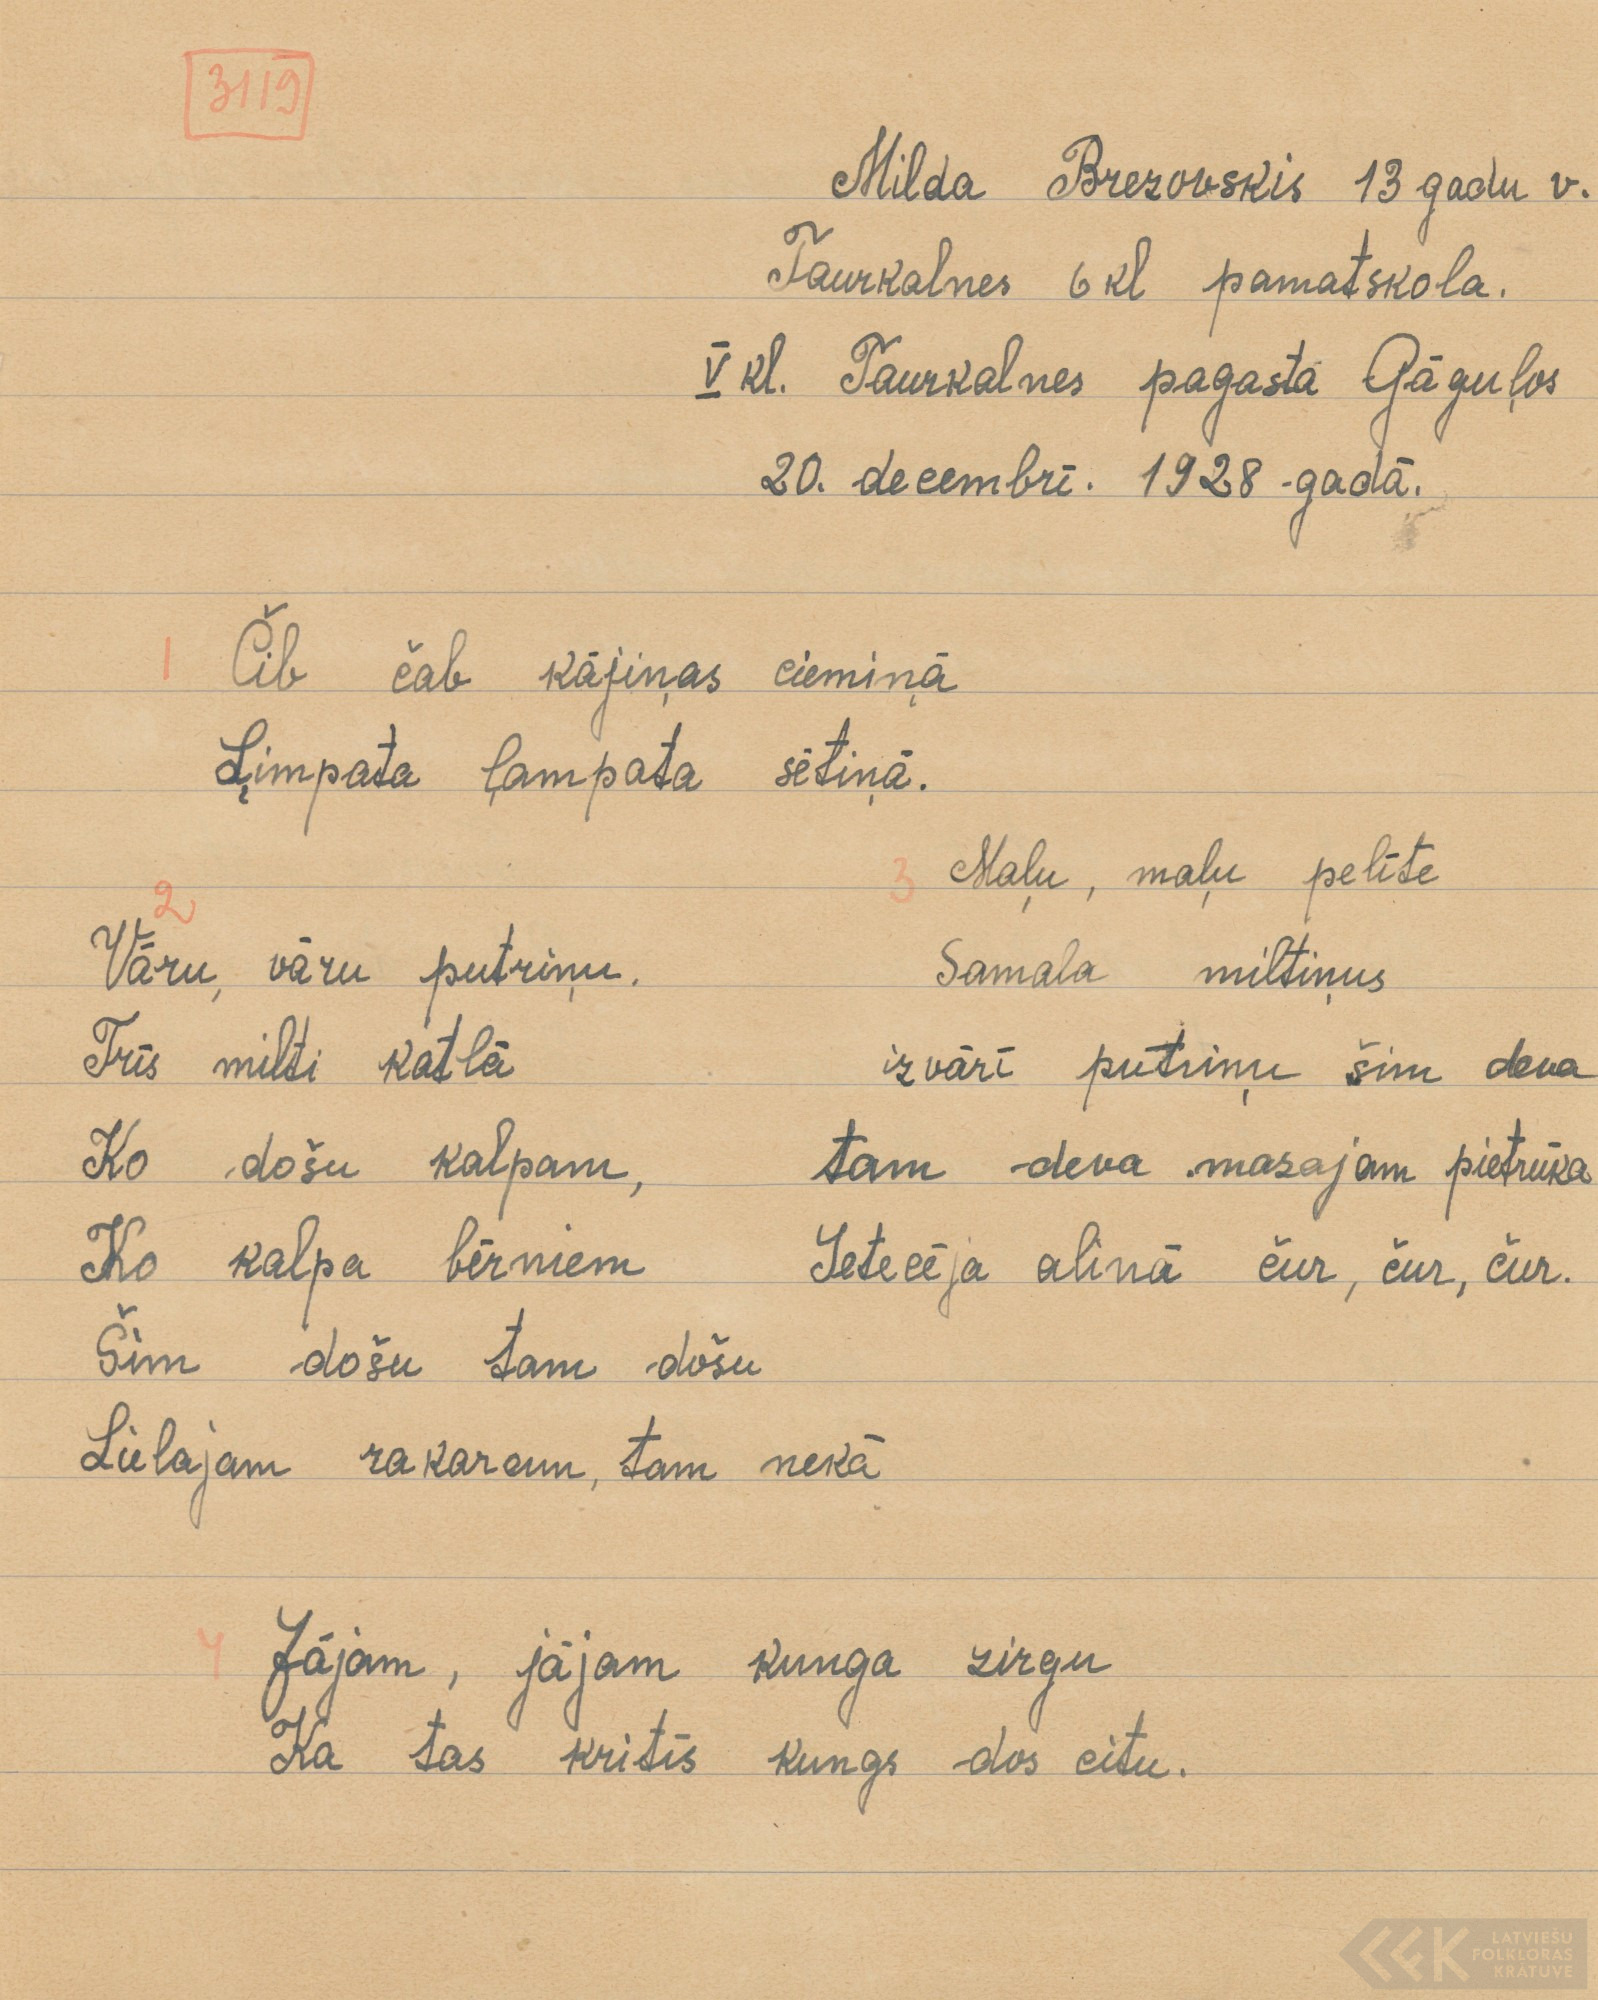 3119
Milda Brezovskis 13 gadu v.
Taurkalnes 6 kl pamatskola.
V kl. Taurkalnes pagastā Gāguļos
20. decembrī. 1928 gadā.
1 Čib čab kājiņas ciemiņā
Ļimpata ļampata sētiņā.
2
Vāru, vāru putriņu.
Trīs milti katlā
Ko došu kalpam,
Ko kalpa bērniem
Šim došu tam došu
Lielajam rakaraun, tam nekā
3 Maļu, maļu pelīte
Samala miltiņus
izvārī putriņu šim deva
tam deva mazajam pietrūka
Ietecēja aliņā čur, čur, čur.
4 Jājam, jājam kunga zirgu
Ka tas kritīs kungs dos citu.
LATVIEŠU
FOLKLORAS
KRĀTUVE